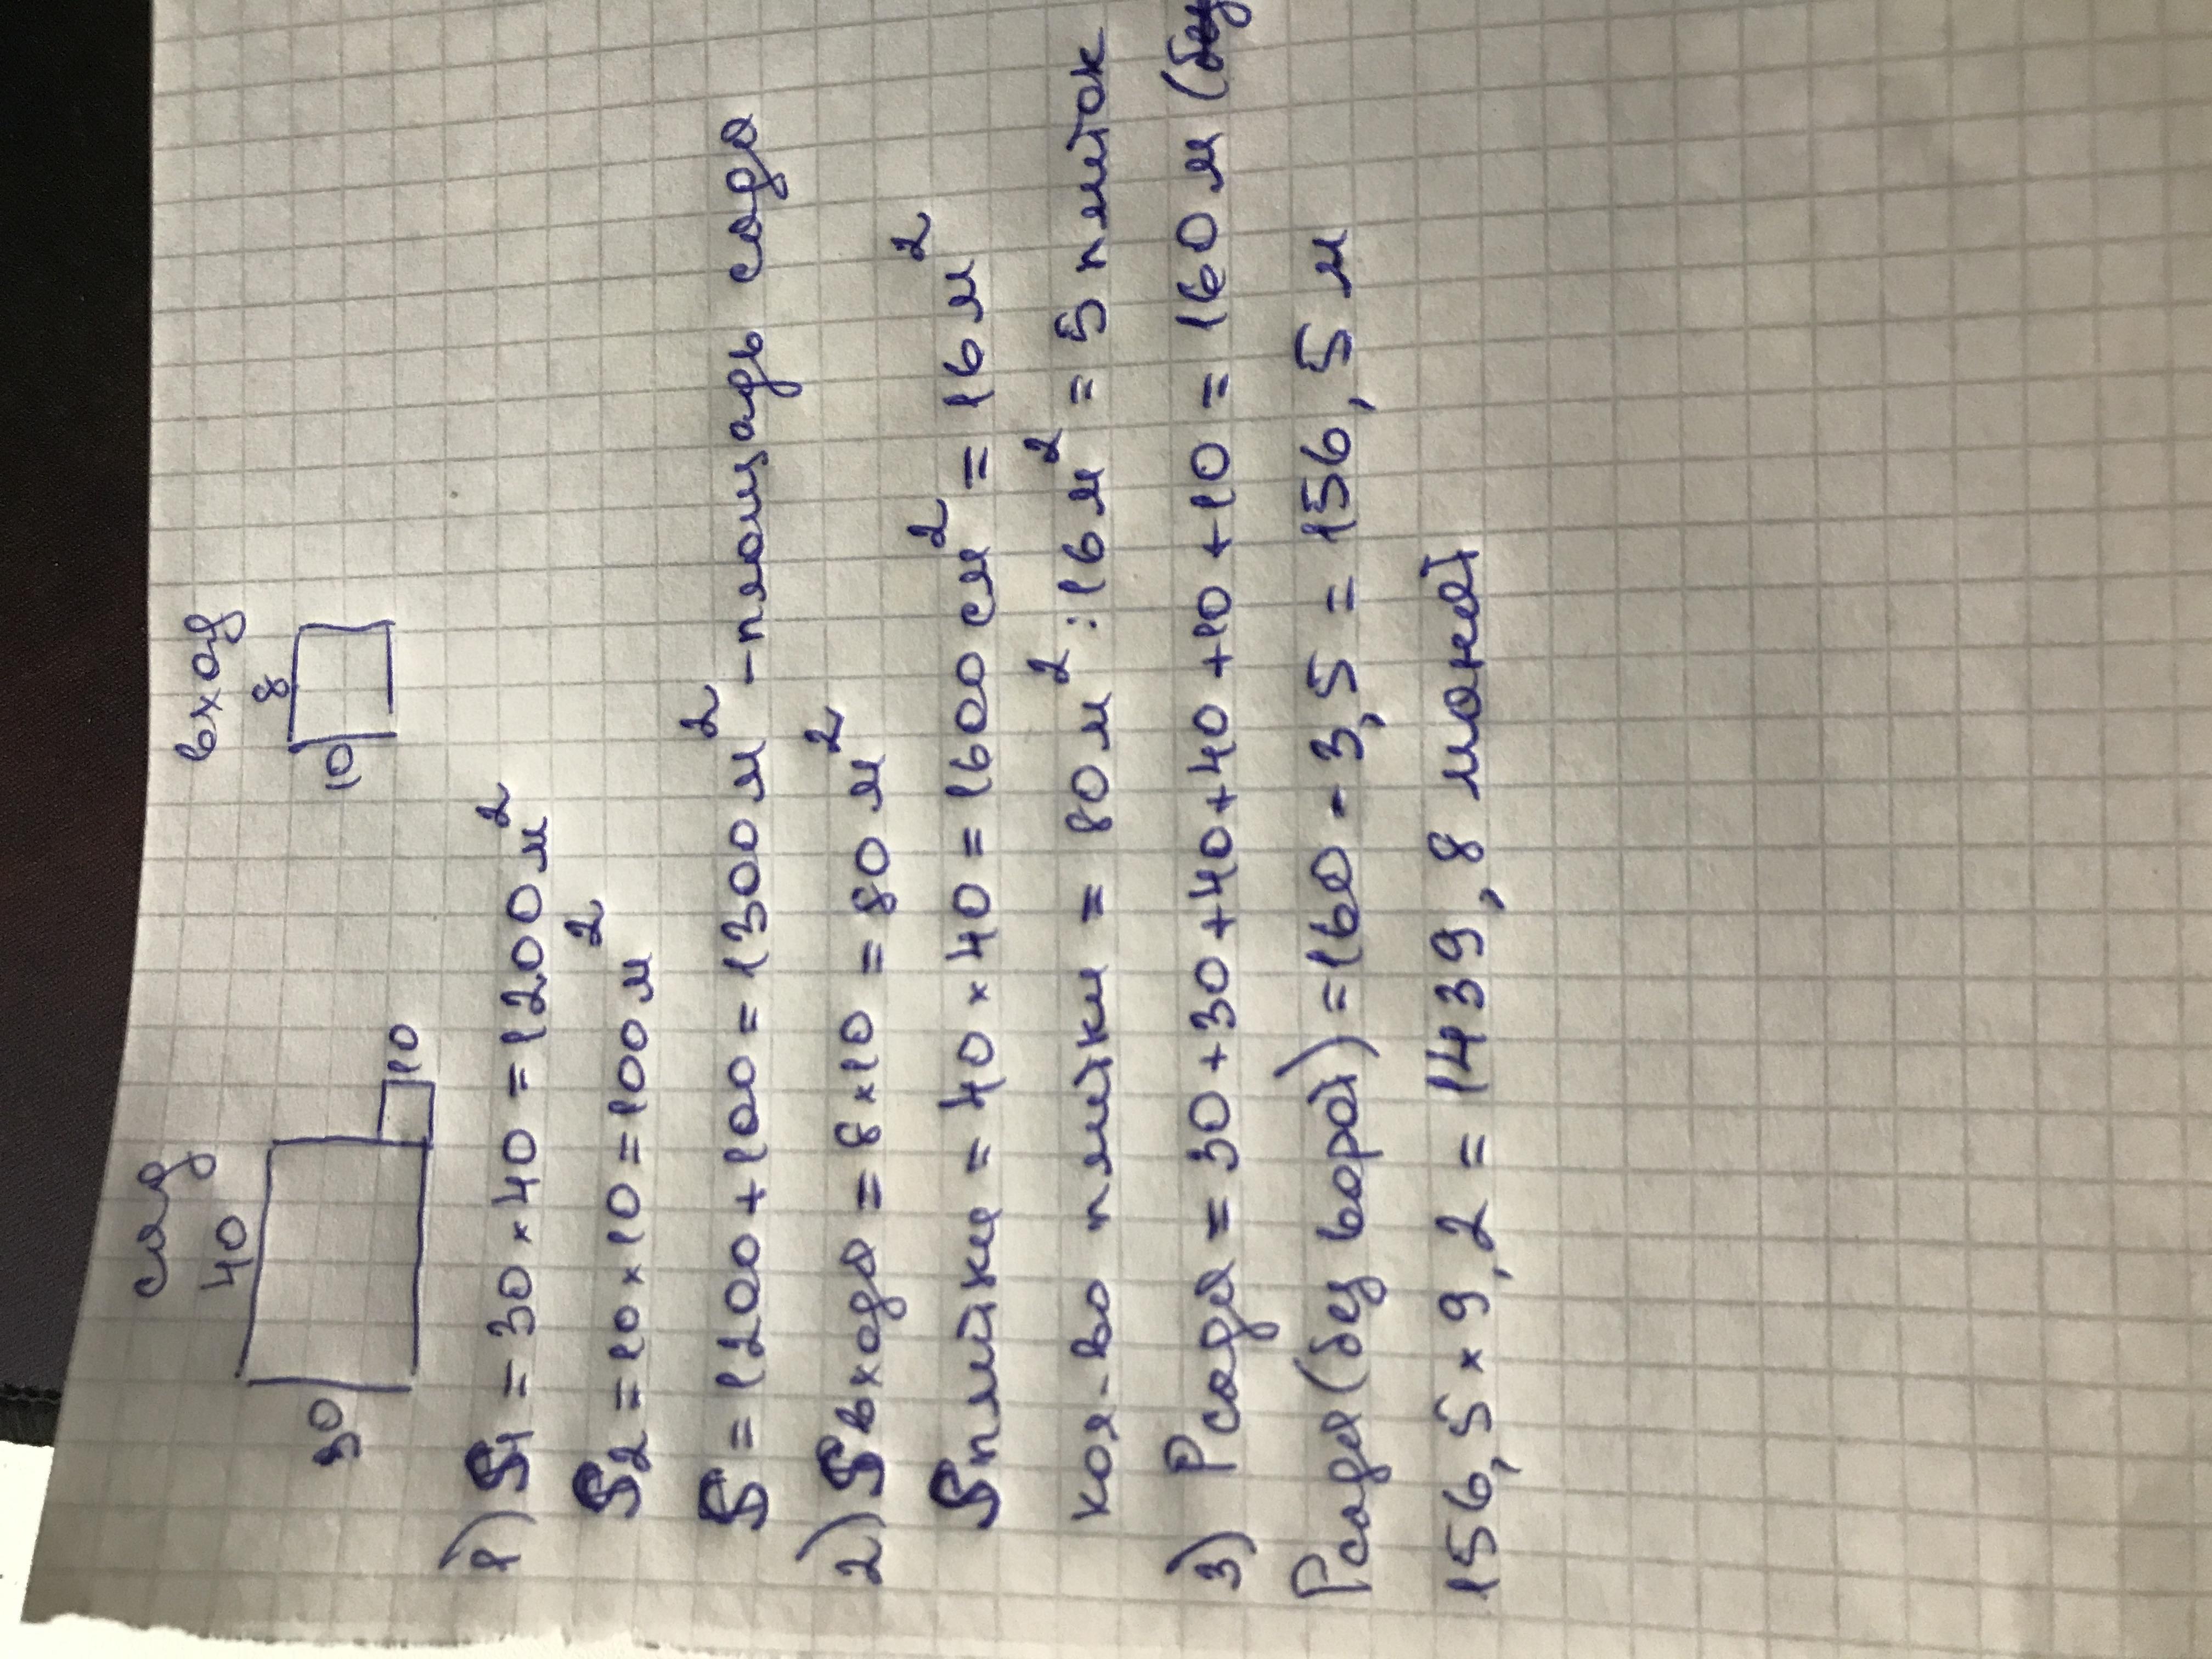 сад
вход
40
8
30
10
10
1) S1 = 30 × 40 = 1200 м²
S2 = 10 × 10 = 100 м²
S = 1200 + 100 = 1300 м² - площадь сада
2) S входа = 8 × 10 = 80 м²
S плитки = 40 × 40 = 1600 см² = 16 м²
кол-во плитки = 80 м² : 16 м² = 5 плиток
3) P сада = 30 + 30 + 40 + 40 + 40 + 10 + 10 = 160 м (
P сада (без ворот) = 160 - 3,5 = 156,5 м
156,5 × 9,2 = 1439,8 монет